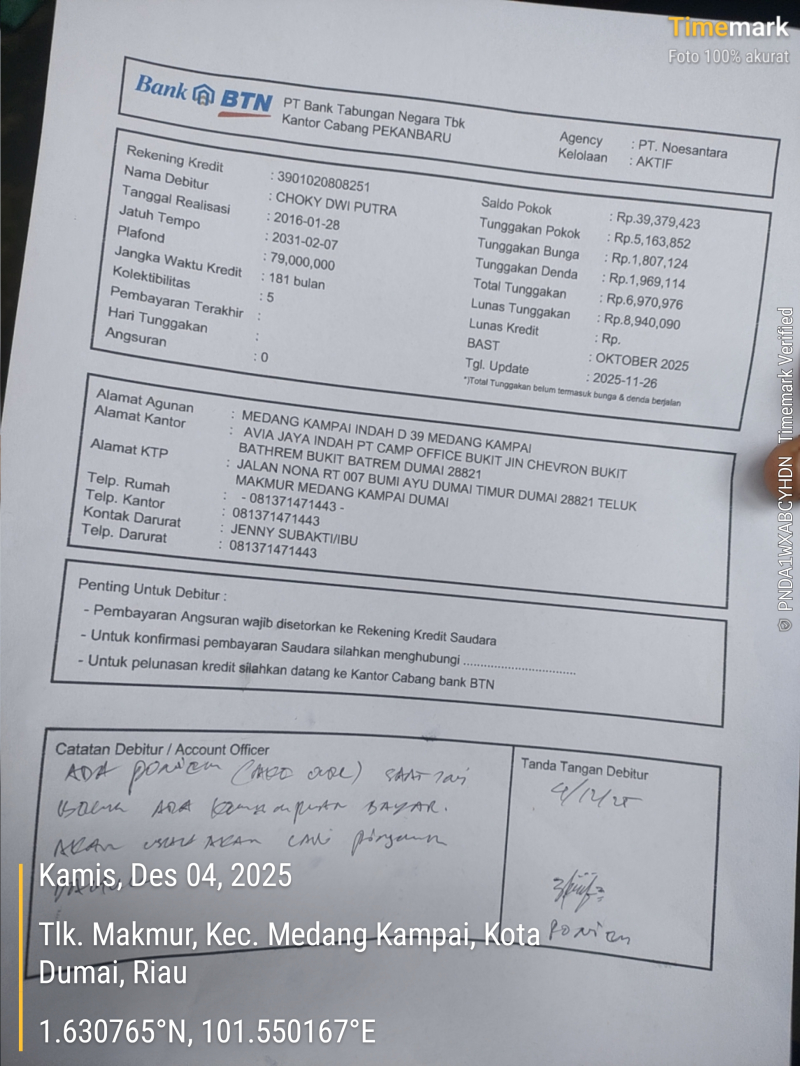 Timemark
Foto 100% akurat
Bank BTN PT Bank Tabungan Negara Tbk
Kantor Cabang PEKANBARU
Agency : PT. Noesantara
Kelolaan : AKTIF
Rekening Kredit : 3901020808251
Nama Debitur : CHOKY DWI PUTRA
Tanggal Realisasi : 2016-01-28
Jatuh Tempo : 2031-02-07
Plafond : 79,000,000
Jangka Waktu Kredit : 181 bulan
Kolektibilitas : 5
Pembayaran Terakhir :
Hari Tunggakan :
Angsuran : 0
Saldo Pokok : Rp.39,379,423
Tunggakan Pokok : Rp.5,163,852
Tunggakan Bunga : Rp.1,807,124
Tunggakan Denda : Rp.1,969,114
Total Tunggakan : Rp.6,970,976
Lunas Tunggakan : Rp.8,940,090
Lunas Kredit : Rp.
BAST : OKTOBER 2025
Tgl. Update : 2025-11-26
*)Total Tunggakan belum termasuk bunga & denda berjalan
Alamat Agunan : MEDANG KAMPAI INDAH D 39 MEDANG KAMPAI
Alamat Kantor : AVIA JAYA INDAH PT CAMP OFFICE BUKIT JIN CHEVRON BUKIT
BATHREM BUKIT BATREM DUMAI 28821
Alamat KTP : JALAN NONA RT 007 BUMI AYU DUMAI TIMUR DUMAI 28821 TELUK
MAKMUR MEDANG KAMPAI DUMAI
Telp. Rumah : - 081371471443 -
Telp. Kantor : 081371471443
Kontak Darurat : JENNY SUBAKTI/IBU
Telp. Darurat : 081371471443
Penting Untuk Debitur :
- Pembayaran Angsuran wajib disetorkan ke Rekening Kredit Saudara
- Untuk konfirmasi pembayaran Saudara silahkan menghubungi ................................
- Untuk pelunasan kredit silahkan datang ke Kantor Cabang bank BTN
Catatan Debitur / Account Officer
ADA SAAT INI
ADA BAYAR.
AKAN
Tanda Tangan Debitur
4/12/25
Kamis, Des 04, 2025
Tlk. Makmur, Kec. Medang Kampai, Kota
Dumai, Riau
1.630765°N, 101.550167°E
© PNDA1WXABCYHDN Timemark Verified